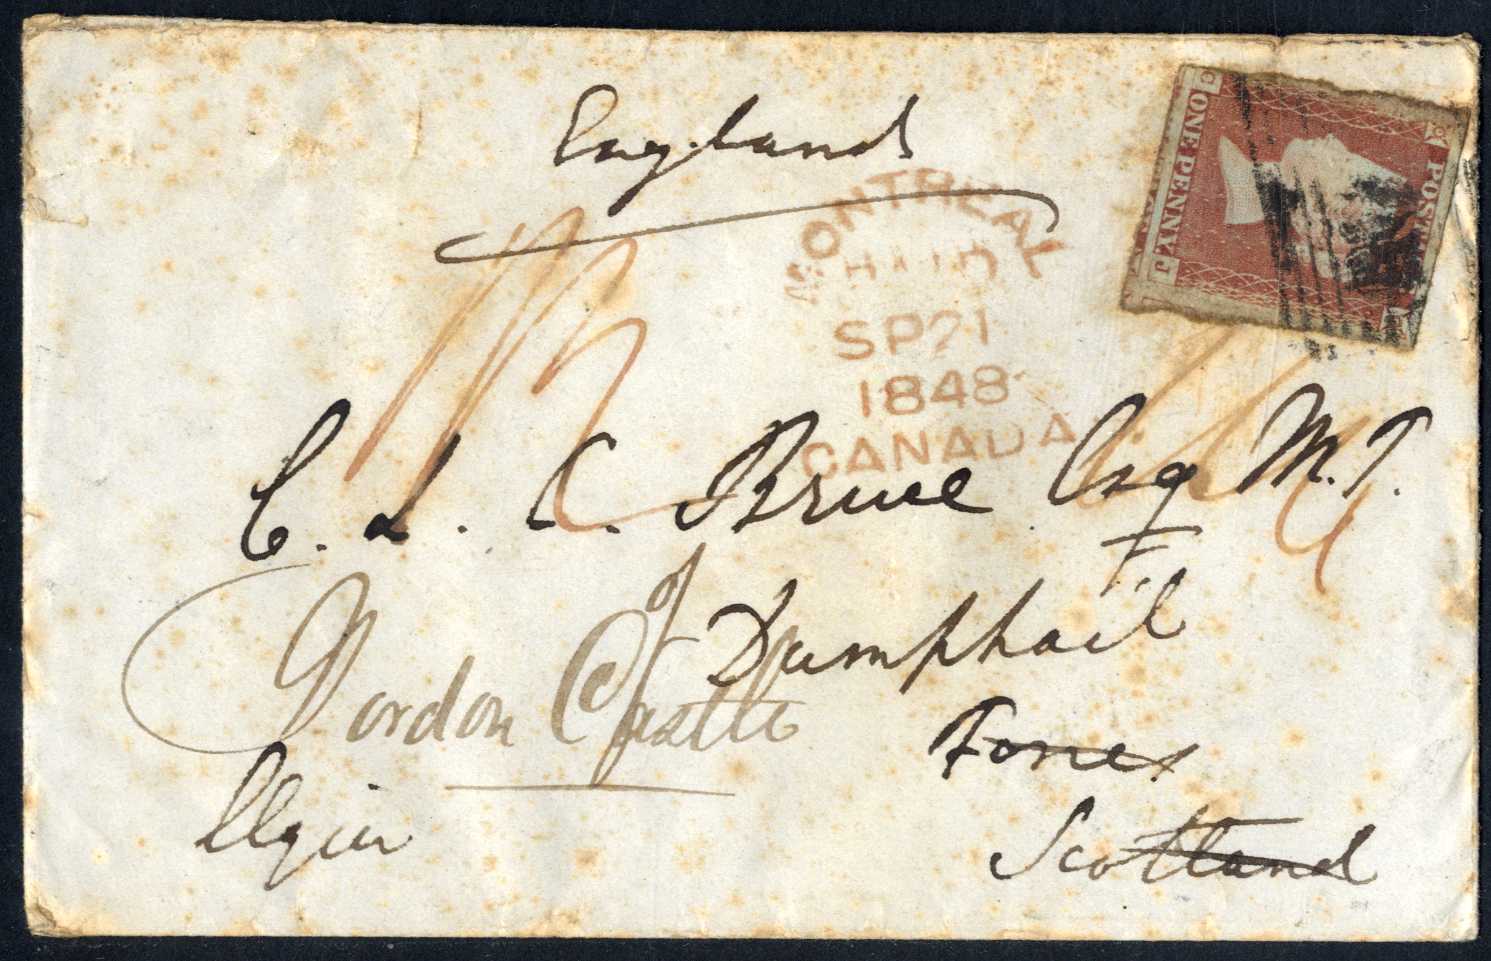 England
MONTREAL
SP 21
1848
CANADA
POSTAGE
ONE PENNY
C J
C. L. C. Bruce Esq M.P.
Dumphail
Gordon Castle
Forres
Elgin
Scotland